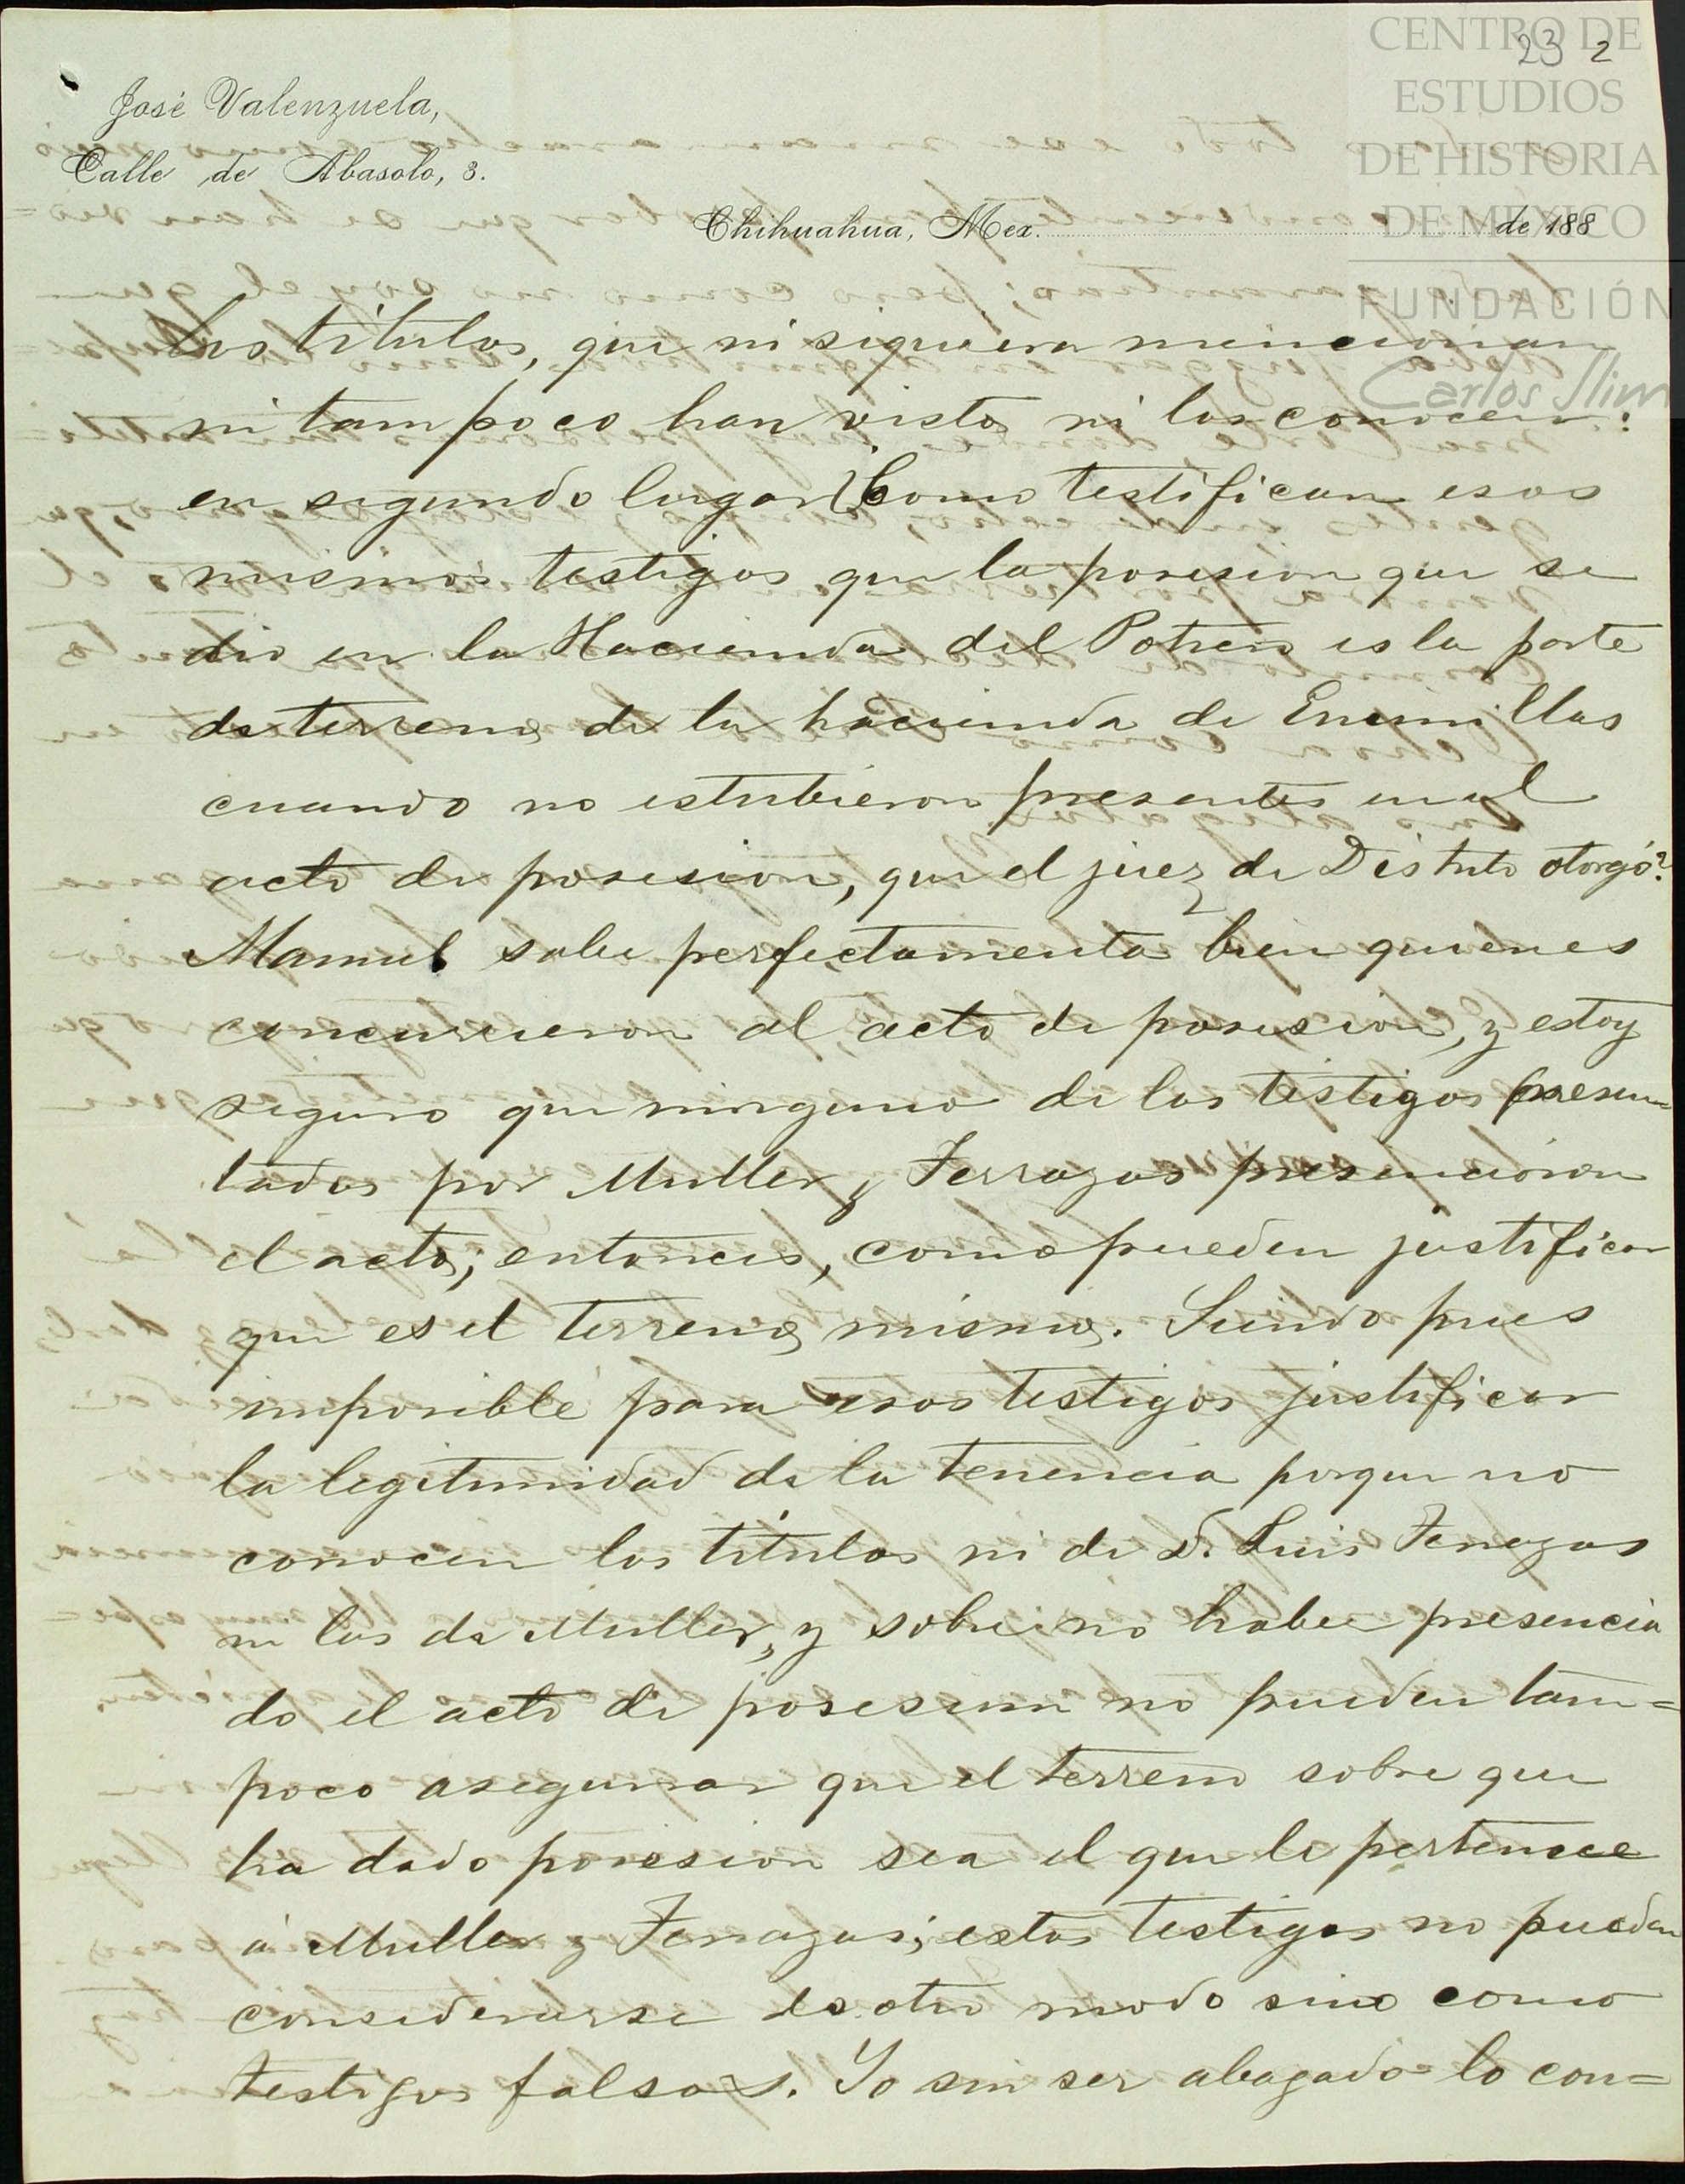 CENTRO DE
ESTUDIOS
DE HISTORIA
DE MEXICO
FUNDACIÓN
Carlos Slim
23 2
José Valenzuela,
Calle de Abasolo, 3.
Chihuahua, Mex. de 188
los titulos, que ni siquiera mencionan
ni tampoco han visto ni los conocen:
en segundo lugar ¿Como testifican esos
mismos testigos que la posesion que se
dio en la Hacienda del Potrero es la parte
de terreno de la hacienda de Encinillas
cuando no estubieron presentes en el
acto de posesion, que el juez de Distrito otorgó?
Manuel sabe perfectamente bien quienes
concurrieron al acto de posesion, y estoy
seguro que ninguno de los testigos presen=
tados por Muller y Terrazas presencióron
el acto; entonces, como pueden justificar
que es el terreno mismo. Siendo pues
imposible para esos testigos justificar
la legitimidad de la tenencia porque no
conocen los titulos ni de D. Luis Terrazas
ni los de Muller, y sobre no haber presencia
do el acto de posesion no pueden tam=
poco asegurar que el terreno sobre que
ha dado posesion sea el que le pertenece
á Muller y Terrazas; estos testigos no pueden
considerarse de otro modo sino como
testigos falsos. Yo sin ser abogado lo con=